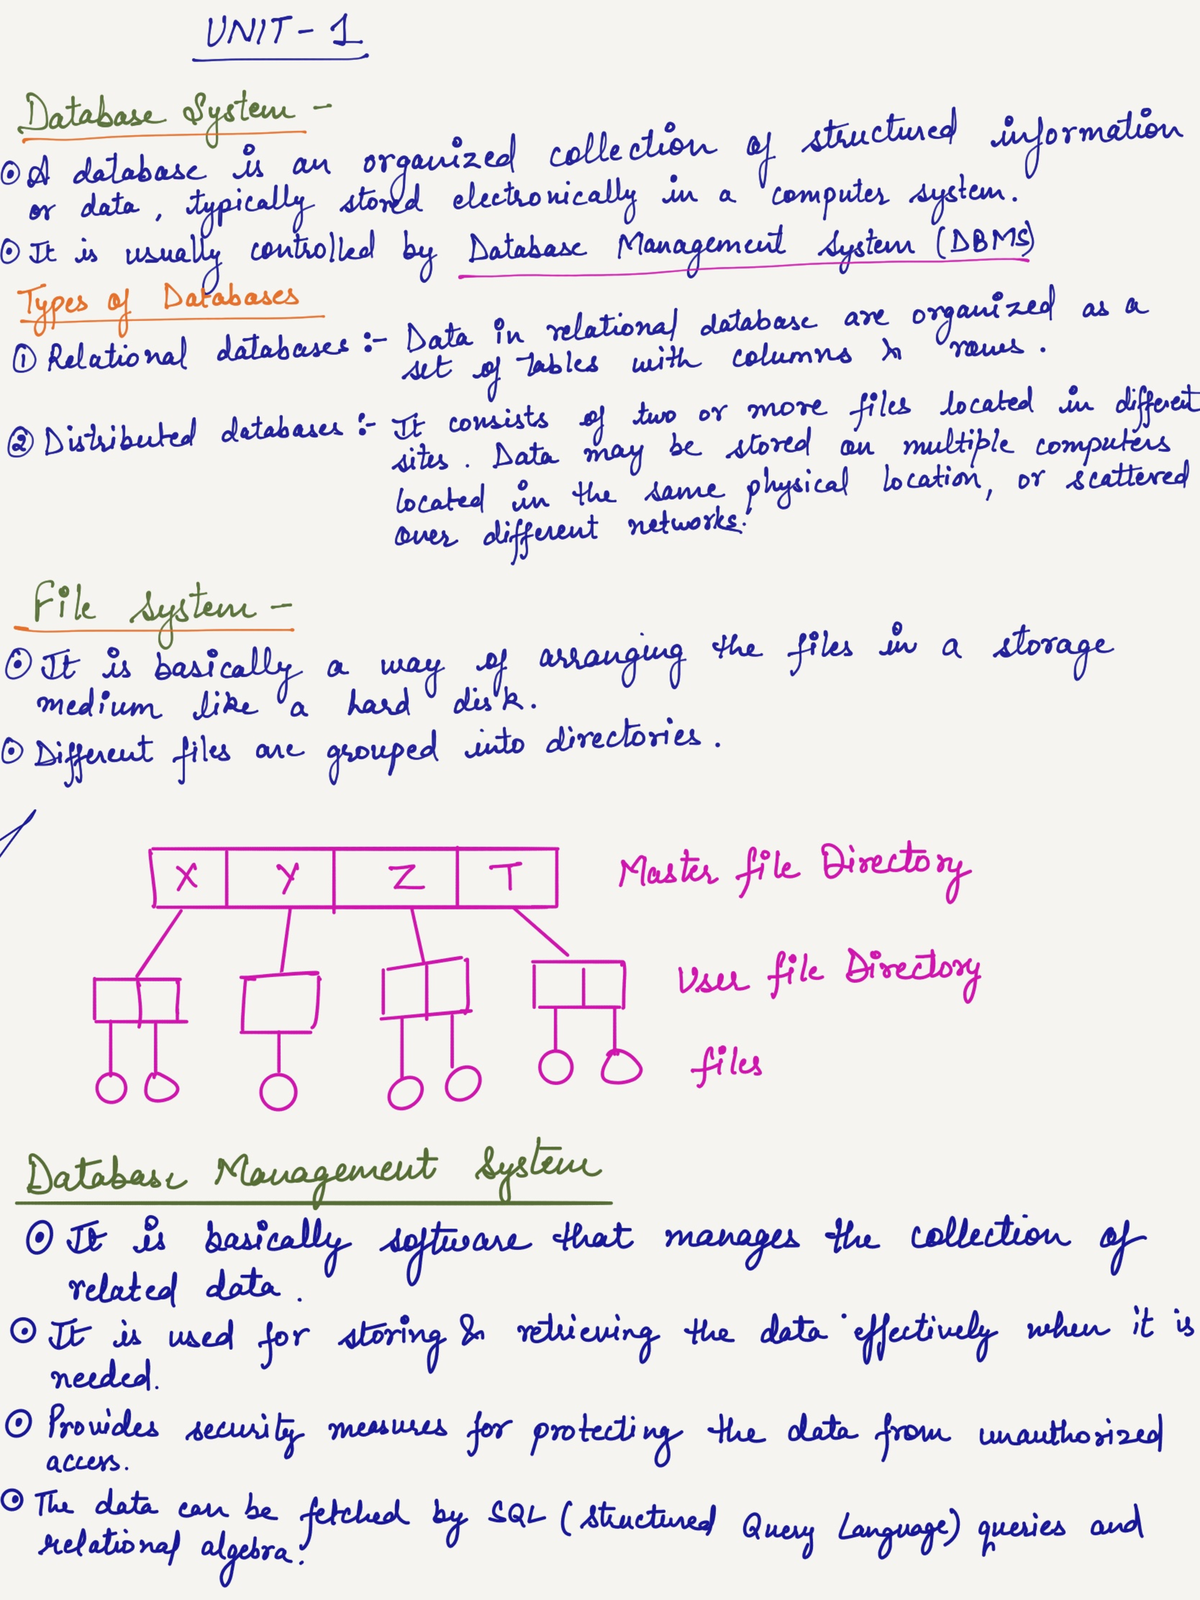 UNIT-1
Database System -
A database is an organized collection of structured information
or data, typically stored electronically in a computer system.
It is usually controlled by Database Management System (DBMS)
Types of Databases
① Relational databases :- Data in relational database are organized as a
set of Tables with columns & rows.
② Distributed databases :- It consists of two or more files located in different
sites. Data may be stored on multiple computers
located in the same physical location, or scattered
over different networks.
File System -
It is basically a way of arranging the files in a storage
medium like a hard disk.
Different files are grouped into directories.
X Y Z T Master file Directory
User file Directory
files
Database Management System
It is basically software that manages the collection of
related data.
It is used for storing & retrieving the data effectively when it is
needed.
Provides security measures for protecting the data from unauthorized
access.
The data can be fetched by SQL (Structured Query Language) queries and
relational algebra.